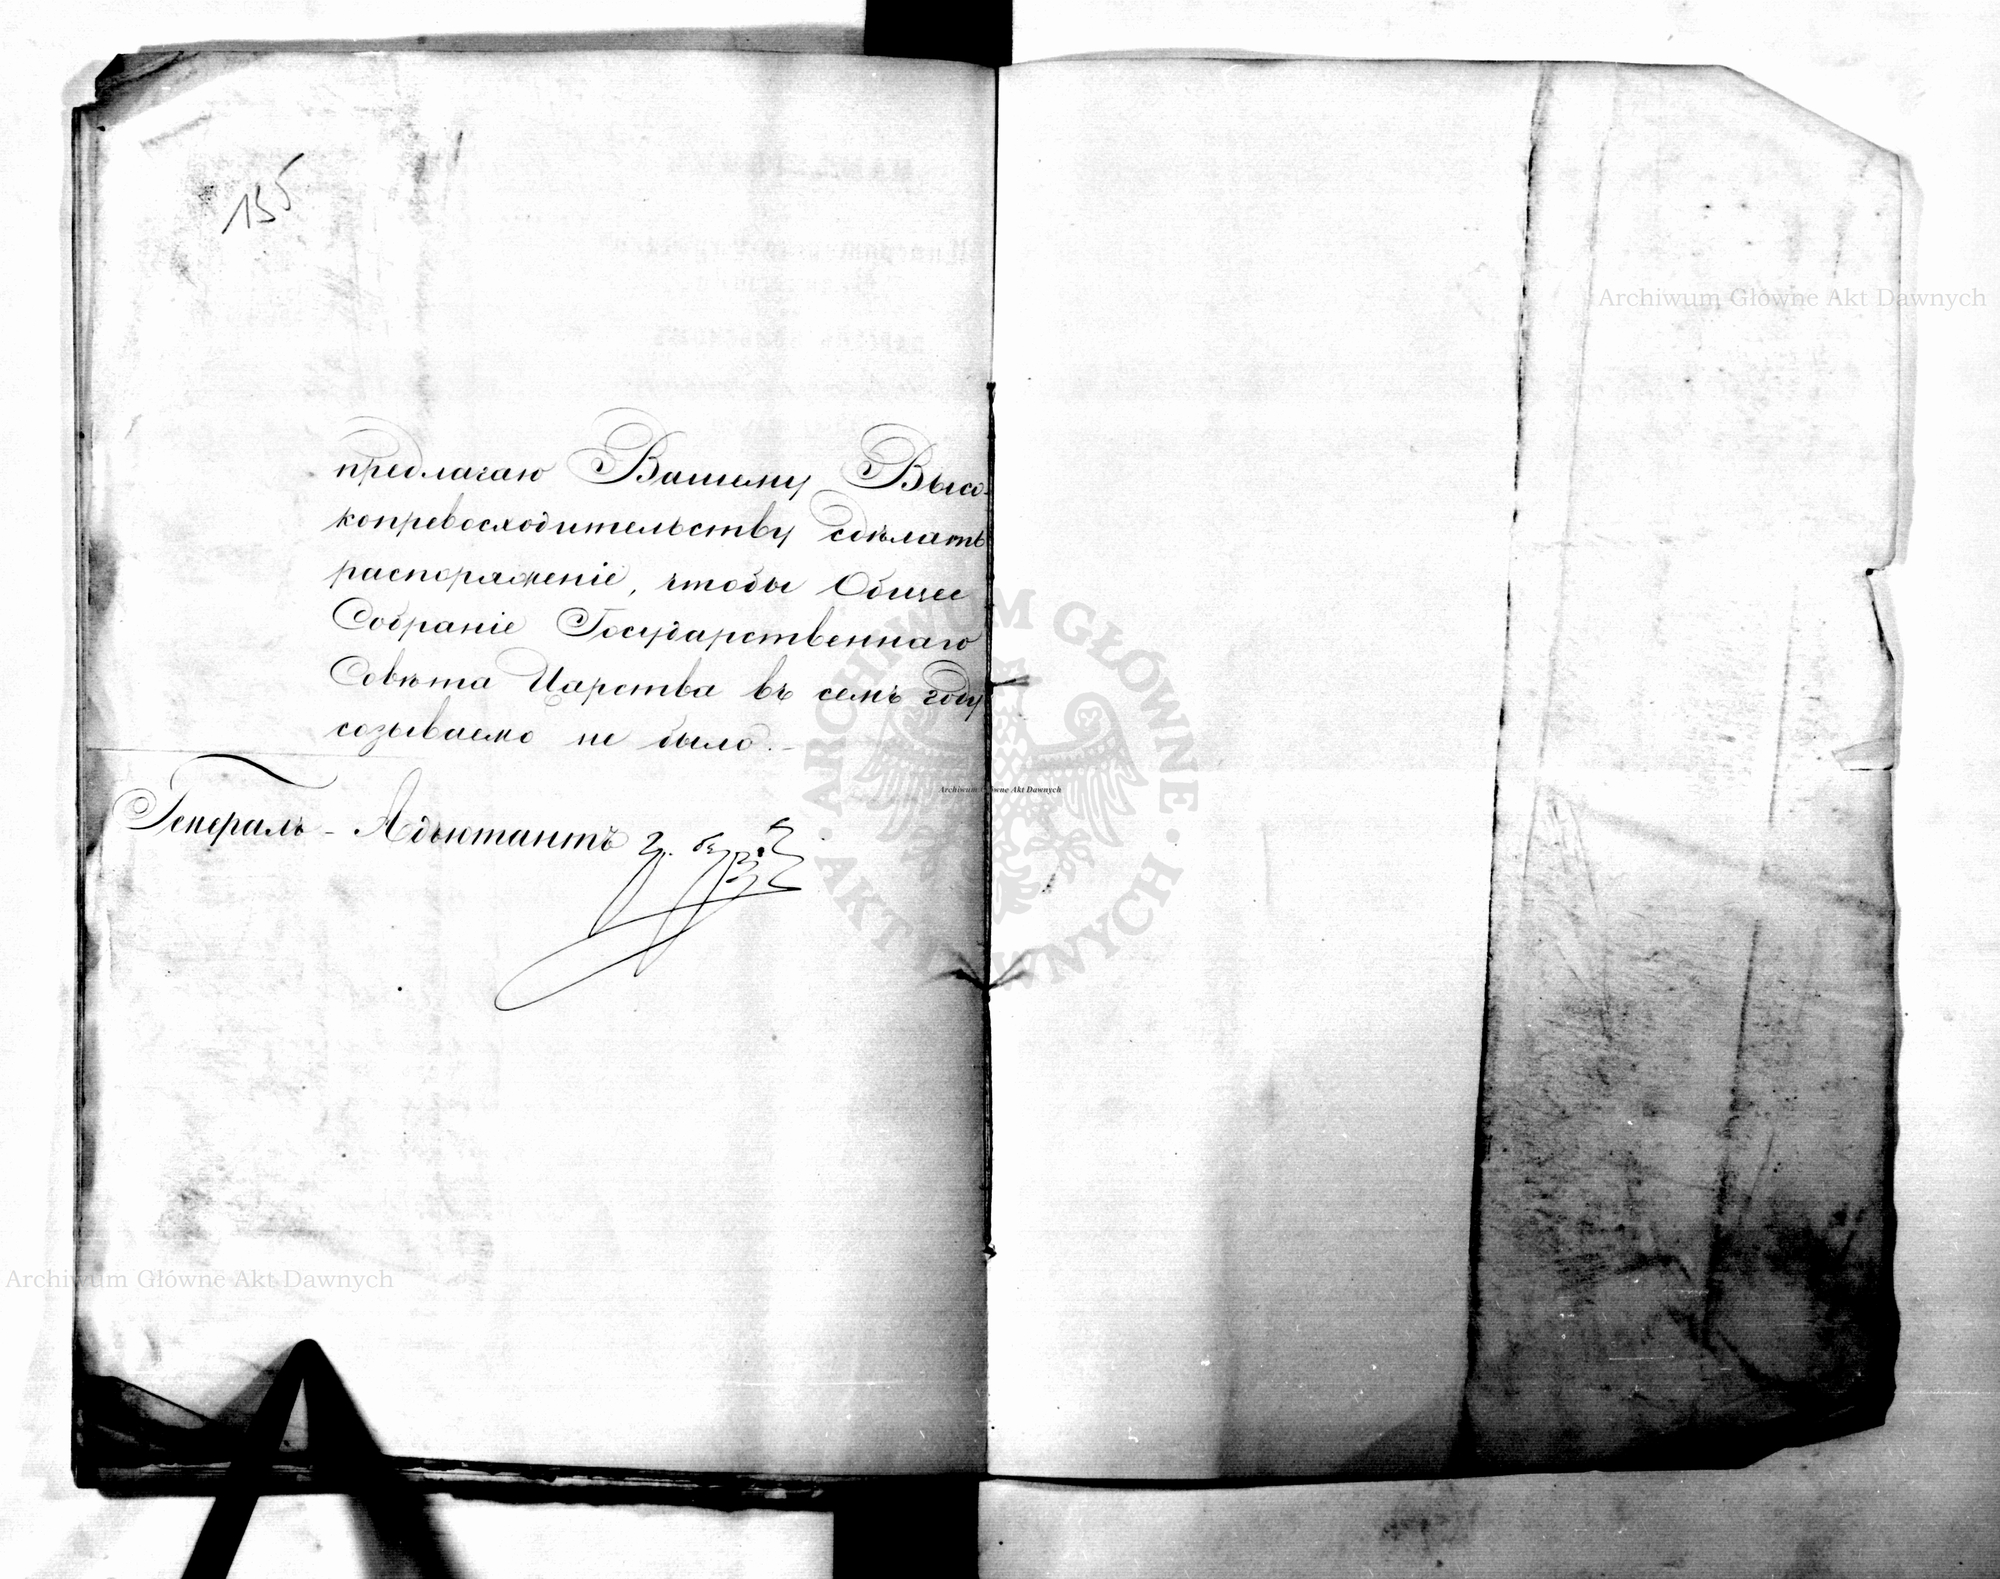 155
предлагаю Вашему Высо-
копревосходительству сдѣлать
распоряженіе, чтобы Общее
Собраніе Государственнаго
Совѣта Царства въ семъ году
созываемо не было.
Генералъ-Адъютантъ Гр. Бергъ
Archiwum Główne Akt Dawnych
ARCHIWUM GŁÓWNE · AKT DAWNYCH ·
Archiwum Główne Akt Dawnych
Archiwum Główne Akt Dawnych